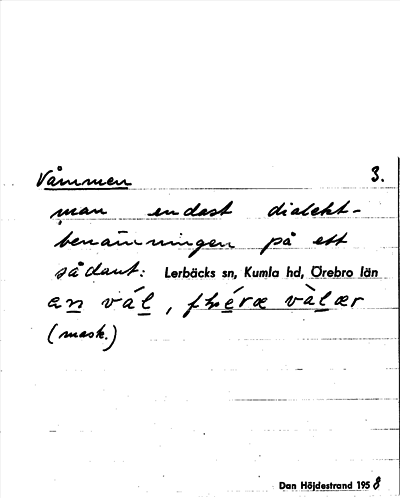 Våmmen 3.
man endast dialekt-
benämningen på ett
sådant: Lerbäcks sn, Kumla hd, Örebro län
en vál, fhéræ vàlær
(mask.)
Dan Höjdestrand 1958